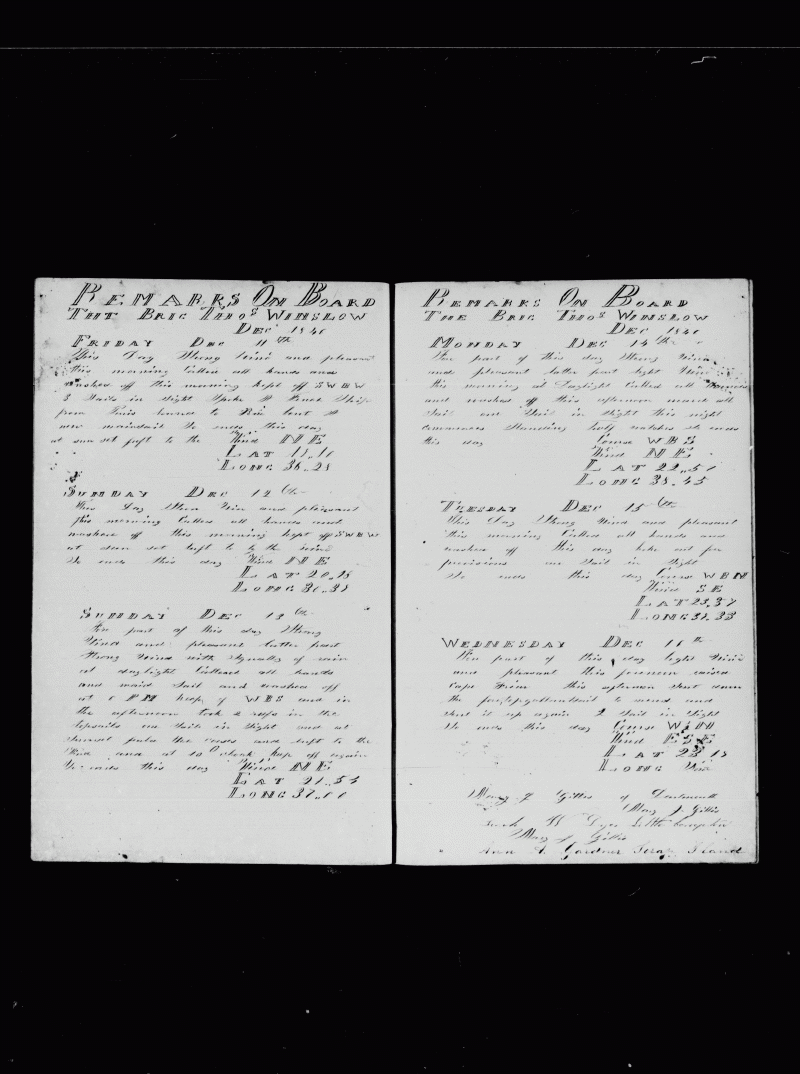 REMARKS ON BOARD
THE BRIG THOS WINSLOW
DEC 1840
FRIDAY DEC 11th
This Day Strong Wind and pleasant
this morning Called all hands and
washed off this morning kept off SWBW
3 Sails in Sight Spoke A French Ship
from bound to A
new mainsail So ends this day
at sun set luft to the Wind NE
LAT
LONG 36.28
SUNDAY DEC 12th
This Day Wind and pleasant
this morning Called all hands and
washed off this morning kept off SWBW
at sun set luft to the wind
So ends this day Wind NE
LAT 20.18
LONG
SUNDAY DEC 13th
Fore part of this day Strong
Wind and pleasant latter part
Strong Wind with Squalls of rain
at daylight Called all hands
and maid Sail and washed off
at PM keep of WBS and in
the afternoon took a reefs in the
topsails one Sail in Sight and at
Sunset and luft to the
Wind and at 10 Oclock kep off again
So ends this day Wind NE
LAT 21.54
LONG
REMARKS ON BOARD
THE BRIG THOS WINSLOW
DEC 1840
MONDAY DEC 14th
Fore part of this day Strong Wind
and pleasant latter part light Wind
this morning at Daylight Called all hands
and washed off this afternoon maid all
Sail one Sail in Sight this night
commences Standing half watches So ends
this day Course WBS
Wind NE
LAT 22.51
LONG 38.45
TUESDAY DEC 15th
This Day Strong Wind and pleasant
this morning Called all hands and
washed off this day broke out for
provisions one Sail in Sight
So ends this day Course WBN
Wind SE
LAT 23.37
LONG
WEDNESDAY DEC 16th
Fore part of this day light Wind
and pleasant this forenoon raised
this afternoon Sent down
the foretopgallantsail to mend and
Sent it up again 2 Sail in Sight
So ends this day Course
Wind ESE
LAT 23.18
LONG
Mary J Gillis of Dartmouth
Mary J. Gillis
W Dyer Little Compton
Mary J Gillis
Ann A. Gardner